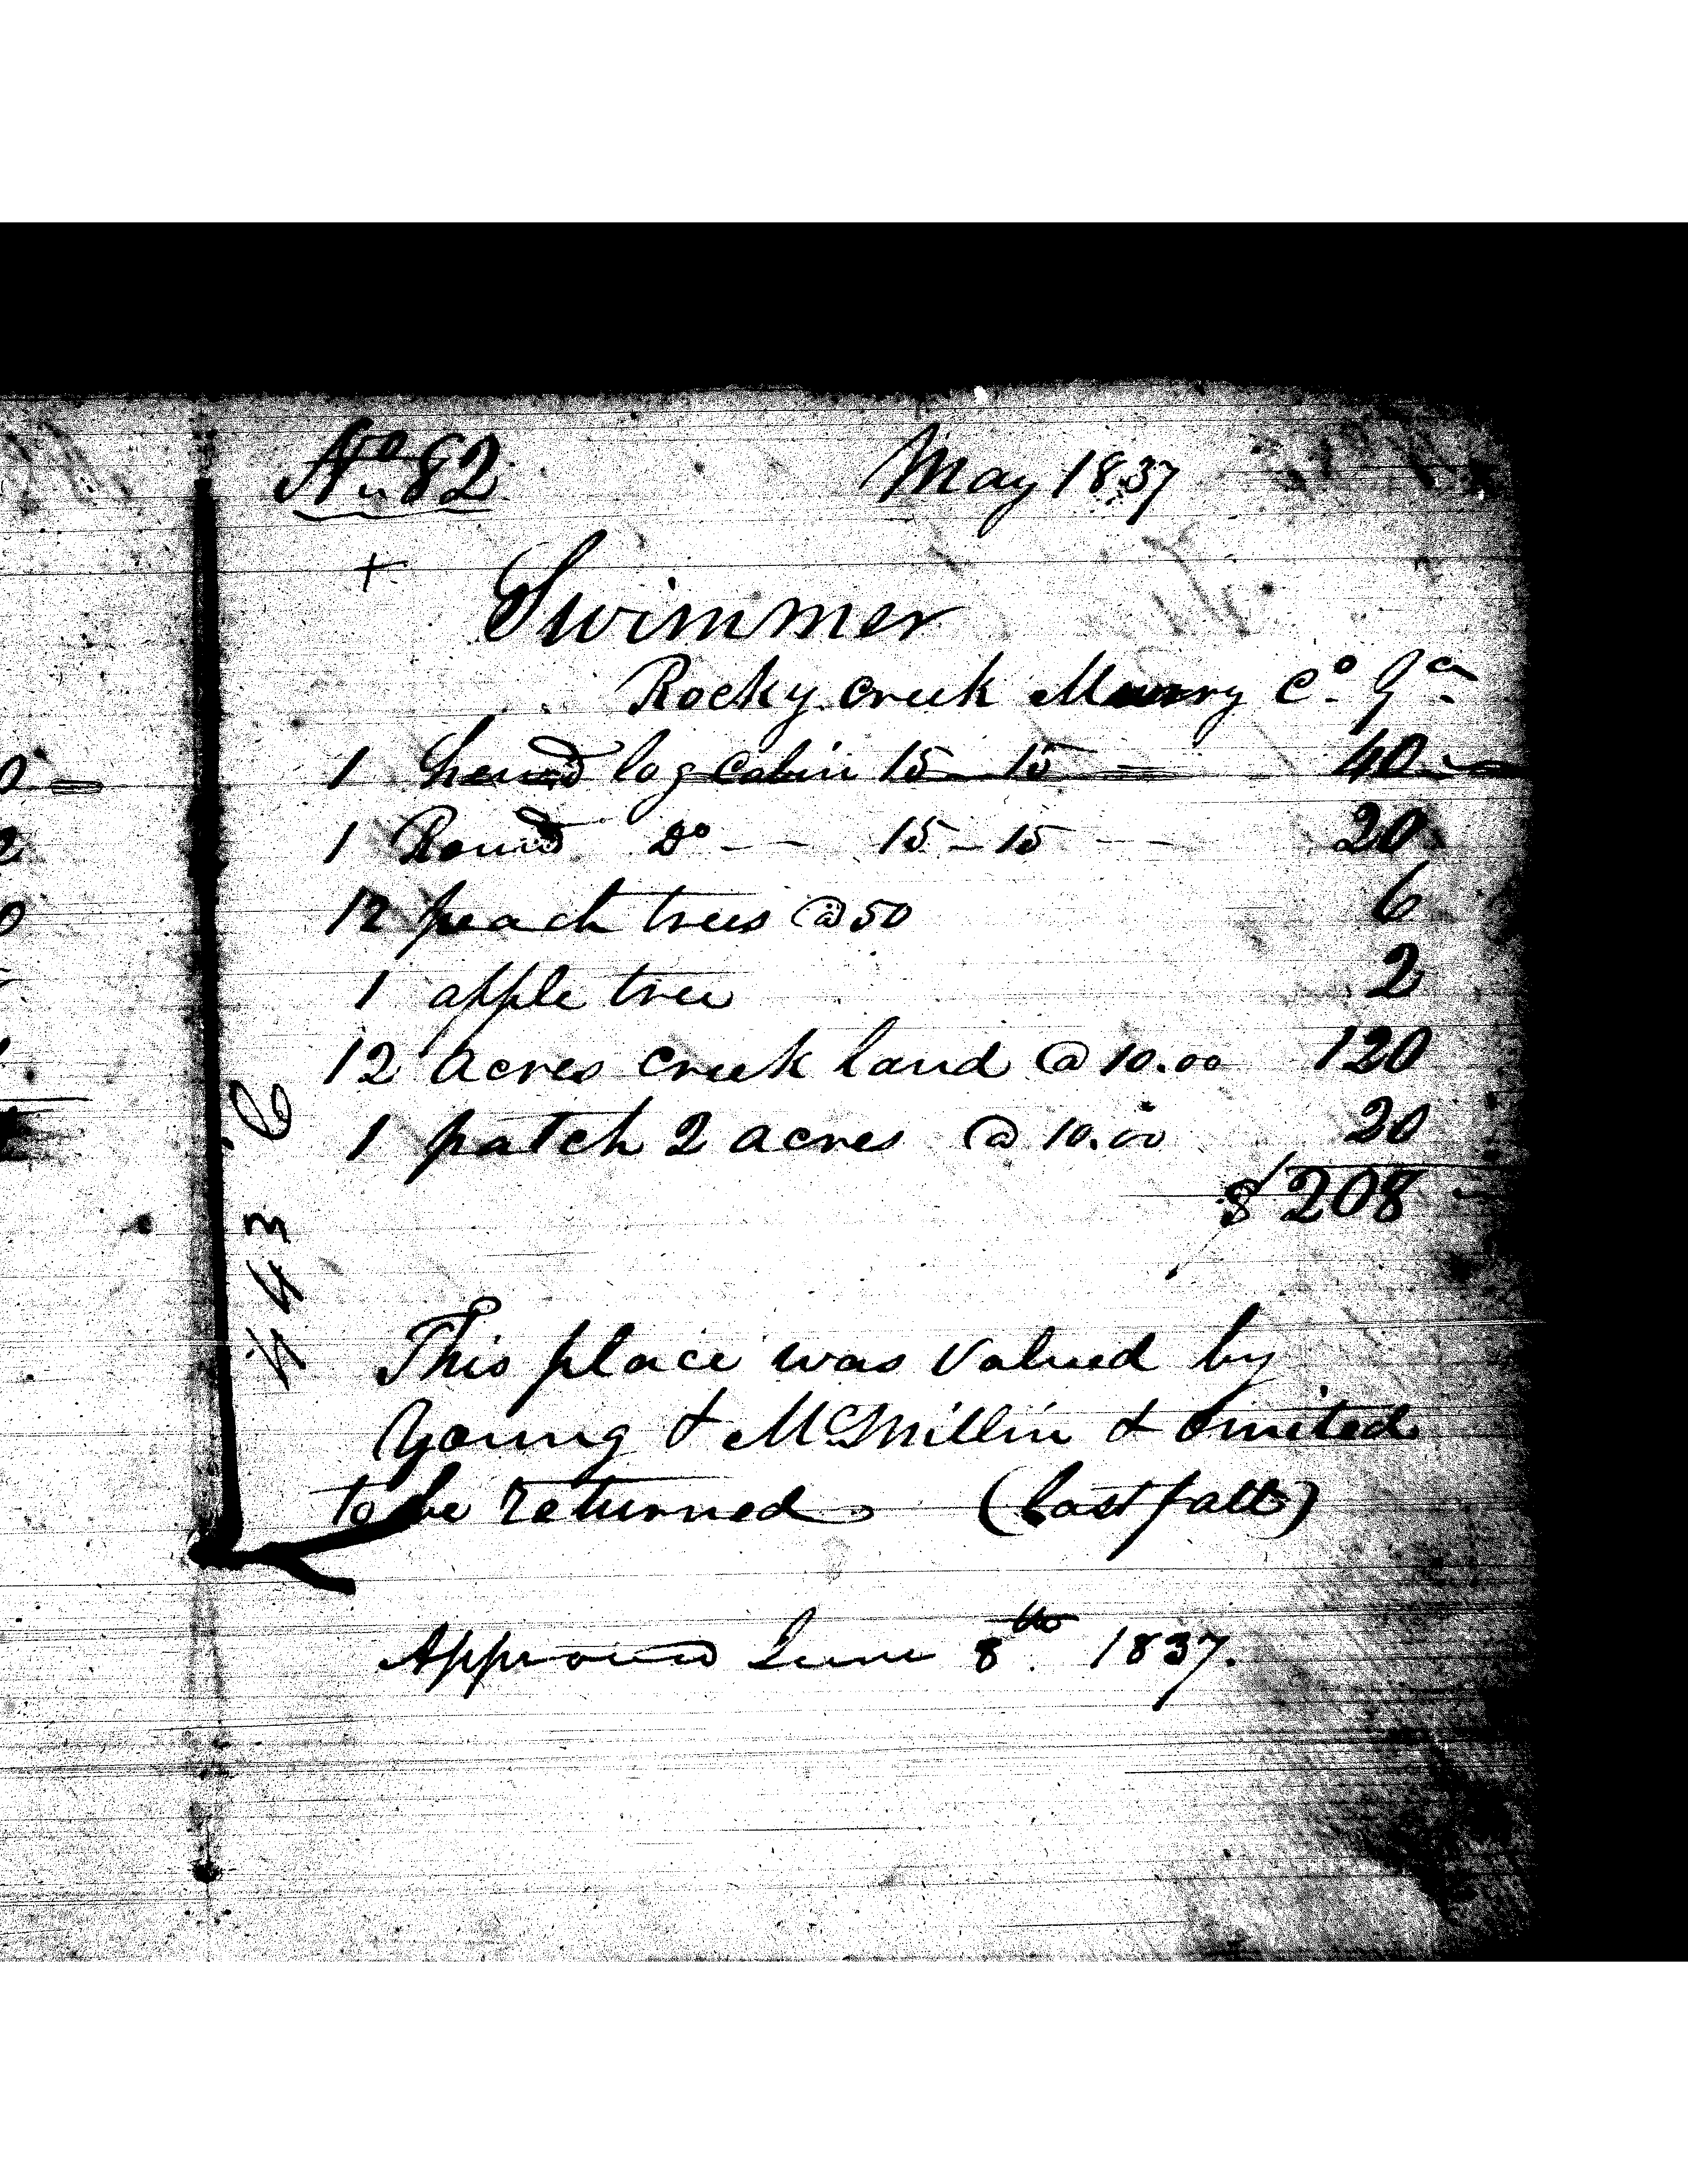 No 82 May 1837
+
Swimmer
Rocky creek Murry Co. Ga.
1 hewed log cabin 15 - 15 = 40
1 Round Do - - 15 - 15 - - 20
12 peach trees @ 50 6
1 apple tree 2
12 acres creek land @ 10.00 120
1 patch 2 acres @ 10.00 20
$ 208
This place was valued by
Young & McMillin & omited
to be returned (last fall)
Approved June 8th 1837.